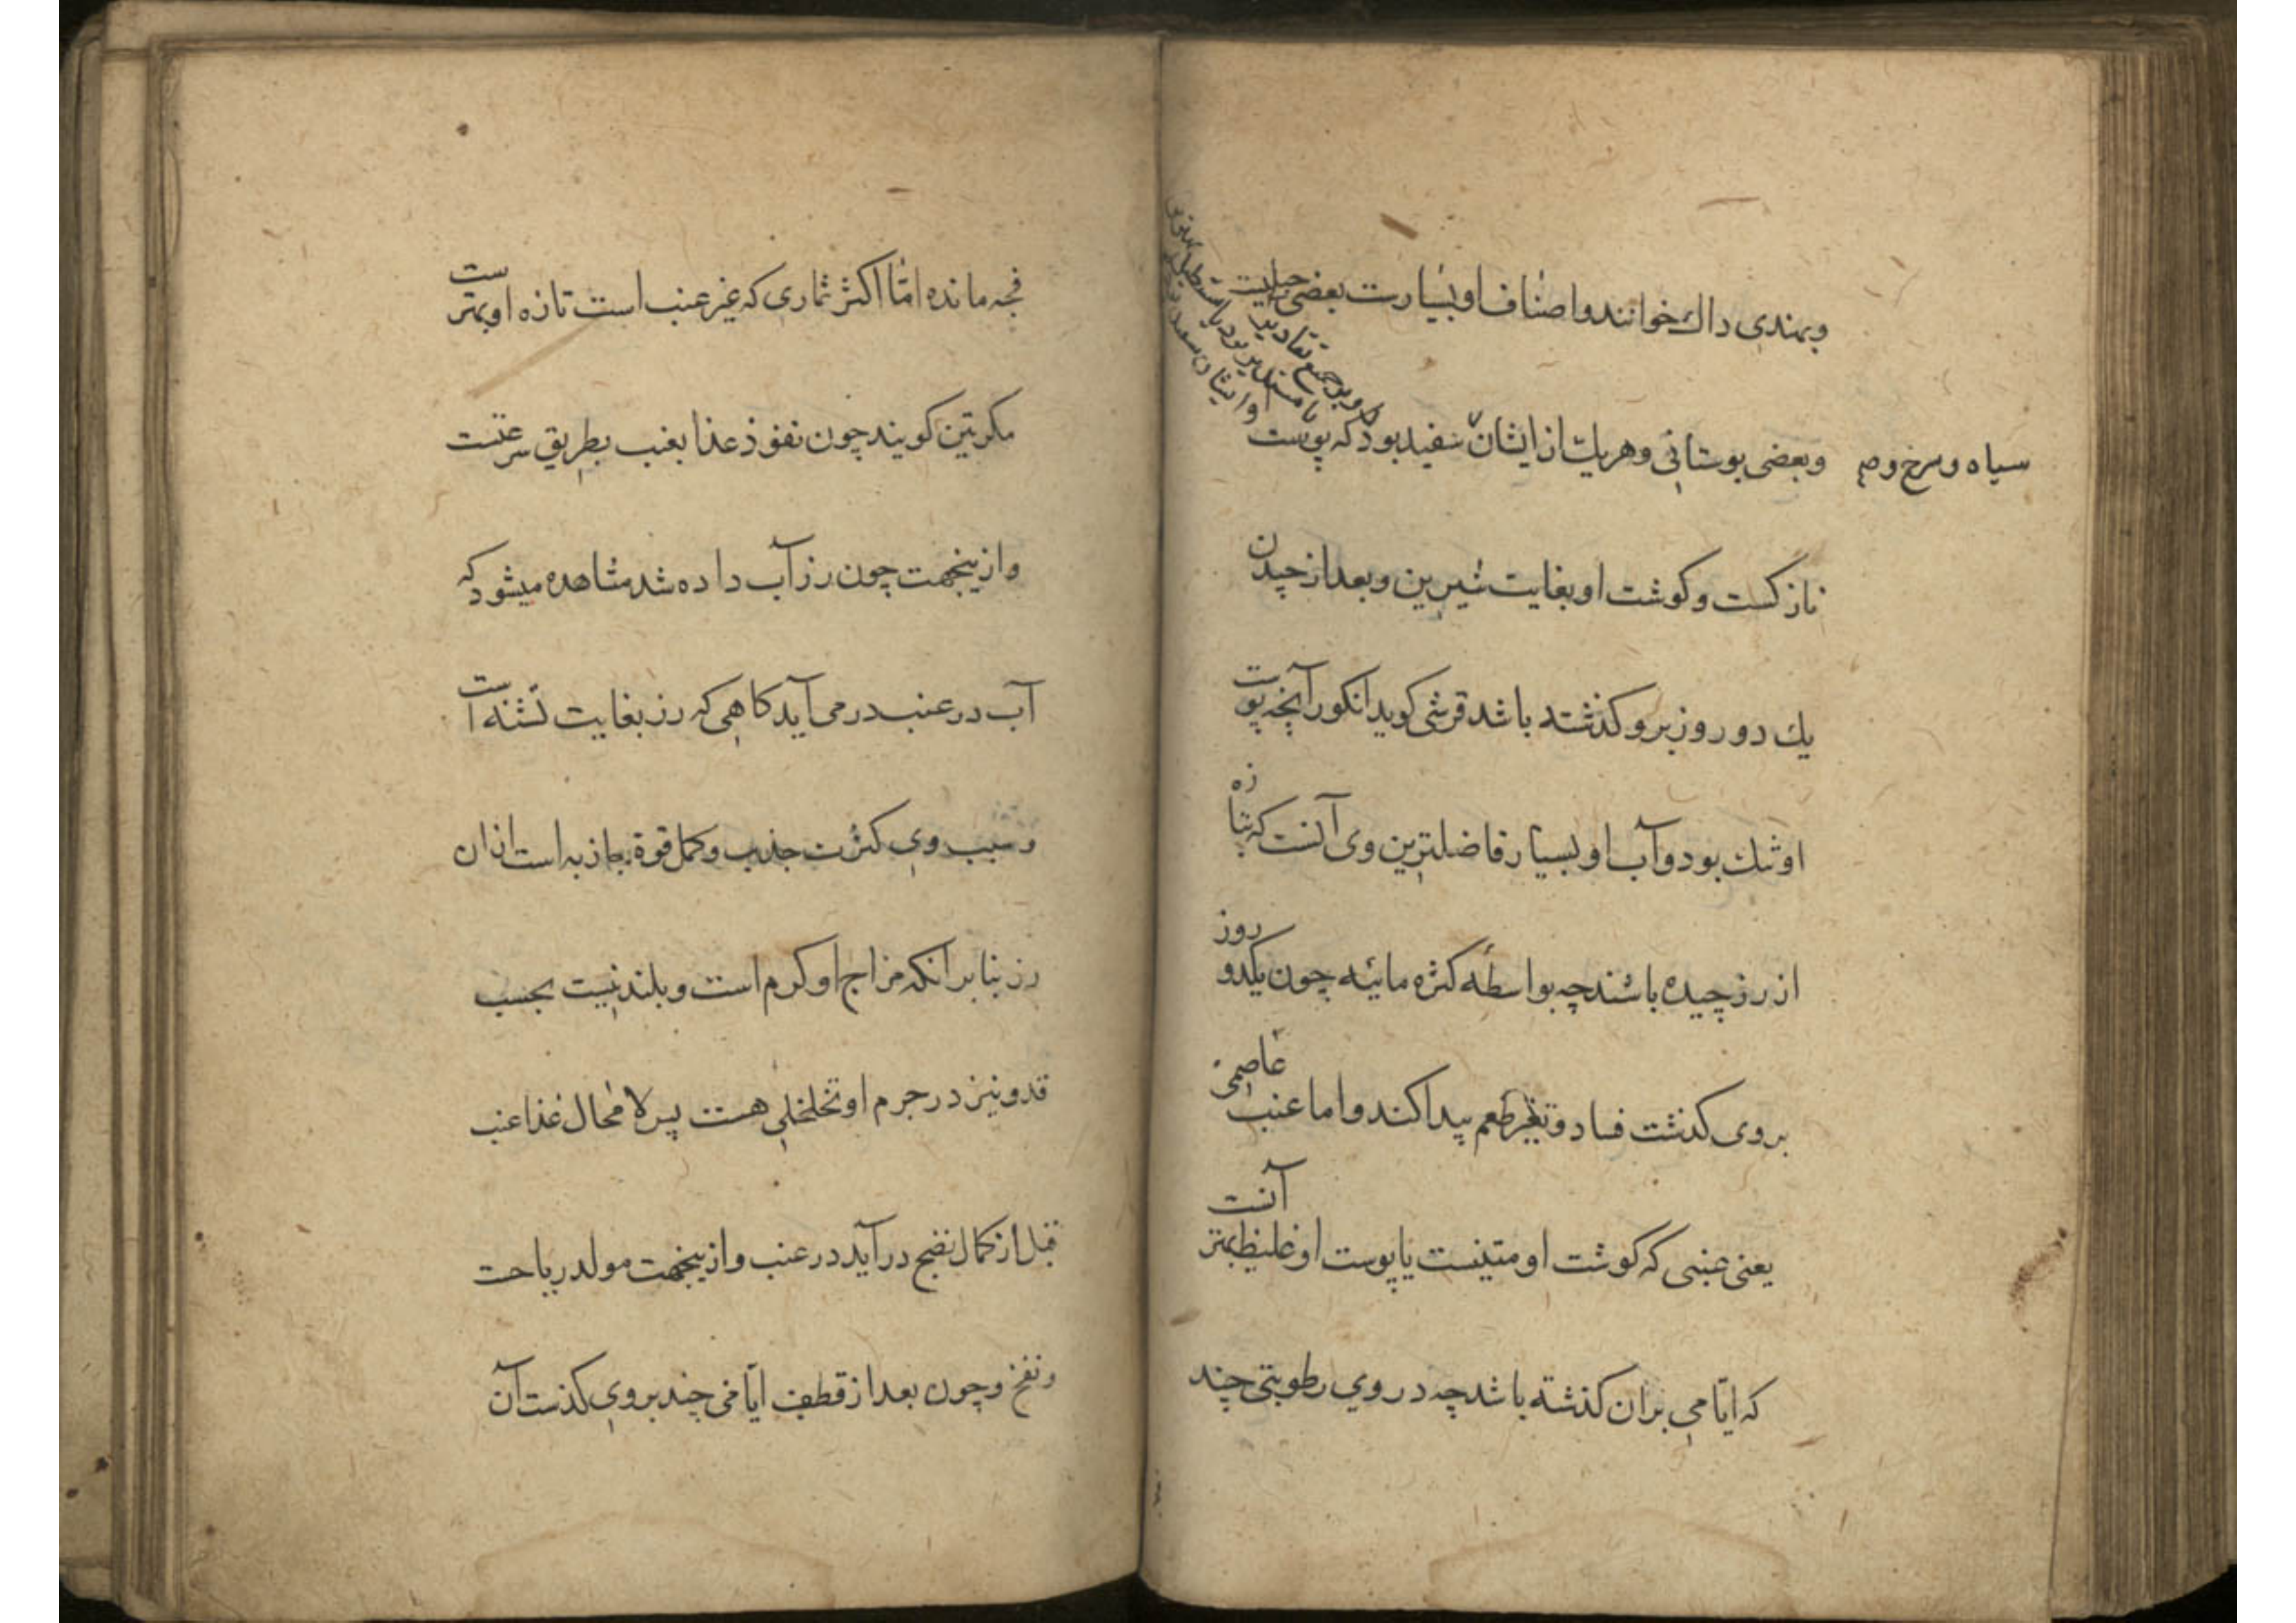 وبهندی داک خوانند واصناف او بسیارست بعضی جبلیست
وبعضی بوستانی وهریک از ایشان سفید بود که پوست
سیاه وسرخ و
وبر جمیع تقادیر
یا مستدیر بود یا مستطیل
وایشان سفید
نازکست وکوشت او بغایت شیرین وبعد از چیدن
یک دو روز برو کذشته باشد قرشی کوید انکور آنچه پوست
او تنک بود وآب او بسیار فاضلترین وی آنست که تازه
از رز چیده باشند چه بواسطهٔ کثرة مائیه چون یکدو روز
بروی کذشت فساد وتغیر طعم پیدا کند واما عنب عاصمی
یعنی عنبی که کوشت او متینست یا پوست او غلیظ بهتر آنست
که ایّامی بران کذشته باشد چه در وی رطوبتی چند
فجه مانده امّا اکثر ثماری که غیر عنب است تازه او بهترست
مکر تین کویند چون نفوذ غذا بعنب بطریق سرعتست
وازینجهت چون رز آب داده شد مشاهده میشود که
آب در عنب در می آید کاهی که رز بغایت تشنه است
وسبب وی کثرت جذب وکمال قوة جاذبه است ازان
رز بنابر آنکه مزاج او کرم است وبلند نیست بحسب
قد ونیز در جرم او تخلخلی هست پس لا محال غذا عنب
قبل از کمال نضج در آید در عنب وازینجهت مولد ریاحت
ونفخ وچون بعد از قطف ایّامی چند بروی کذشت آن